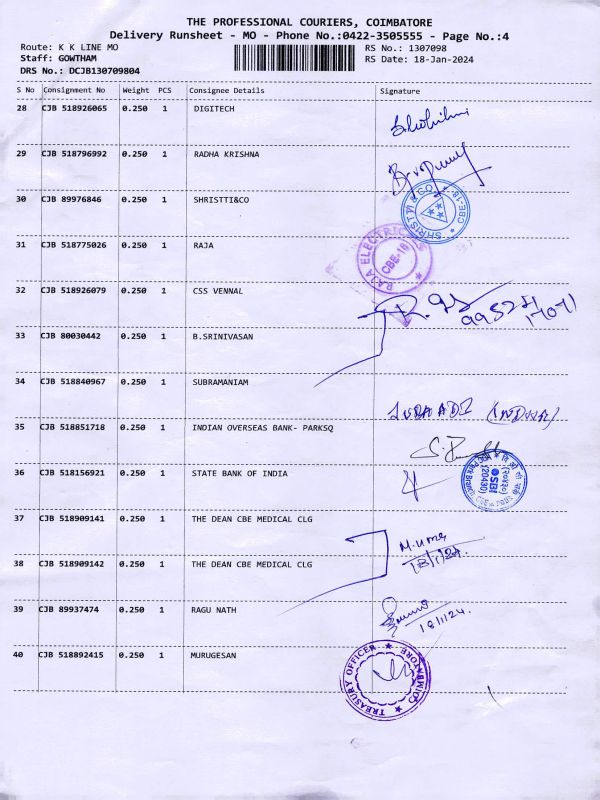 THE PROFESSIONAL COURIERS, COIMBATORE
Delivery Runsheet - MO - Phone No.:0422-3505555 - Page No.:4
Route: K K LINE MO RS No.: 1307098
Staff: GOWTHAM RS Date: 18-Jan-2024
DRS No.: DCJB130709804
S No Consignment No Weight PCS Consignee Details Signature
28 CJB 518926065 0.250 1 DIGITECH
29 CJB 518796992 0.250 1 RADHA KRISHNA
30 CJB 89976846 0.250 1 SHRISTTI&CO
SHRISTTI & CO CBE-18
31 CJB 518775026 0.250 1 RAJA
RAJA ELECTRIC CBE-18
32 CJB 518926079 0.250 1 CSS VENNAL
33 CJB 80030442 0.250 1 B.SRINIVASAN
34 CJB 518840967 0.250 1 SUBRAMANIAM
35 CJB 518851718 0.250 1 INDIAN OVERSEAS BANK- PARKSQ
36 CJB 518156921 0.250 1 STATE BANK OF INDIA
SBI (20430)
37 CJB 518909141 0.250 1 THE DEAN CBE MEDICAL CLG
M. Uma
18/1/24.
38 CJB 518909142 0.250 1 THE DEAN CBE MEDICAL CLG
39 CJB 89937474 0.250 1 RAGU NATH
18/1/24.
40 CJB 518892415 0.250 1 MURUGESAN
TREASURY OFFICER COIMBATORE